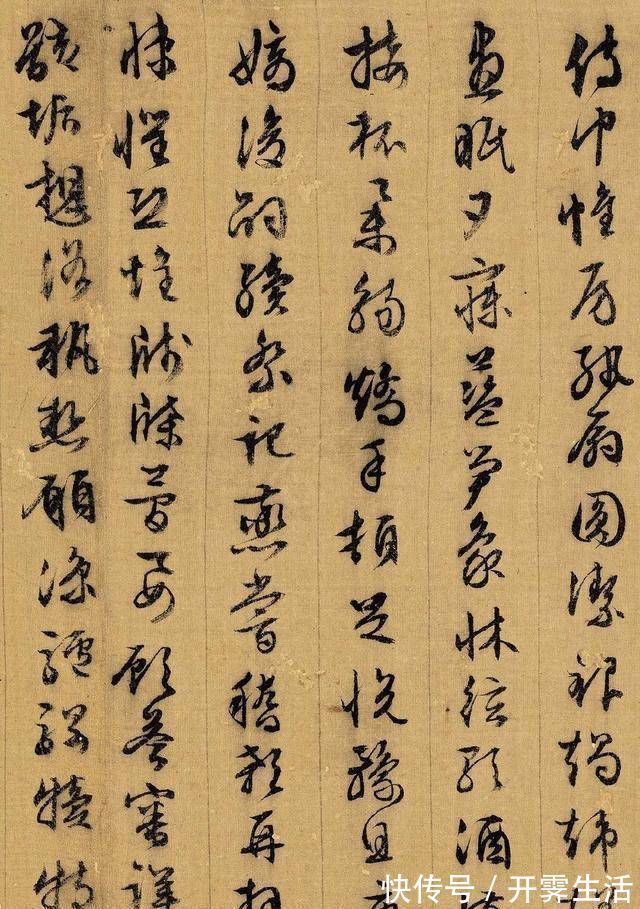 侍巾帷房紈扇圓潔銀燭煒
晝眠夕寐藍筍象牀絃歌酒
接杯舉觴矯手頓足悅豫且
嫡後嗣續祭祀蒸嘗稽顙再拜
悚懼恐惶牋牒簡要顧答審詳
骸垢想浴執熱願涼驢騾犢特
快传号／开霁生活